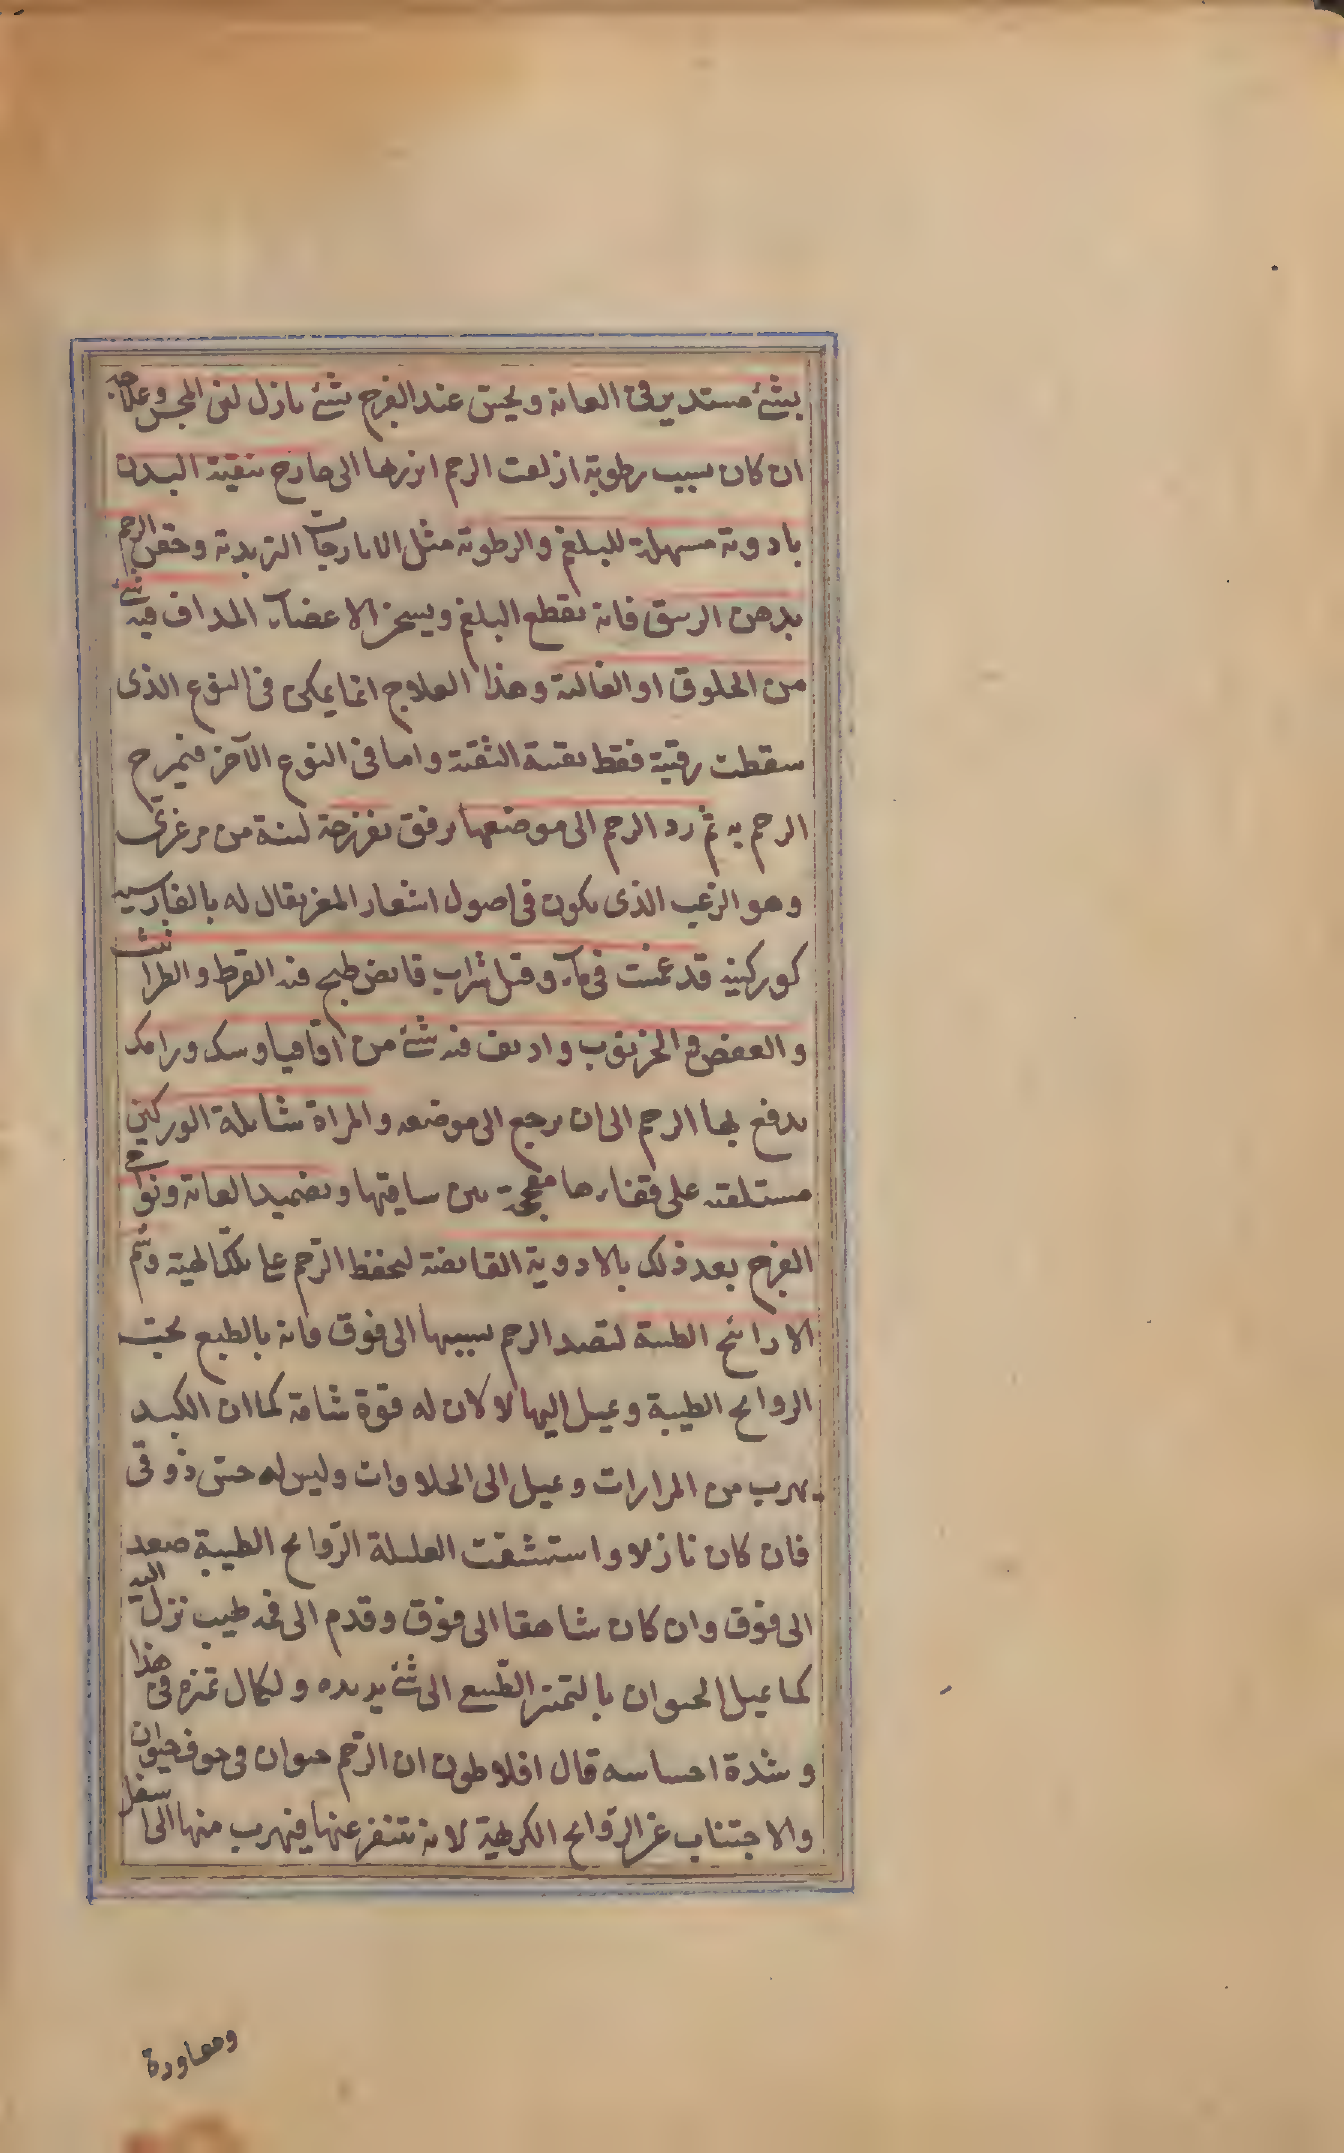 بشئ مستدير في العانة ويحس عند الفرج شئ نازل لين المجس وعلاجه
ان كان بسبب رطوبة ازلقت الرحم ابرزها الى خارج تنقية البدن
بادوية مسهلة للبلغم والرطوبة مثل الايارجات التربدية وحقن الرحم
بدهن الزنبق فانه يقطع البلغم ويسخن الاعضاء المداف فيه شئ
من الخلوق او الغالية وهذا العلاج انما يمكن في النوع الذى
سقطت رقبته فقط بقية الثقبة واما في النوع الآخر فتمريخ
الرحم به ثم رد الرحم الى موضعها برفق بفرزجة لينة من مرعزى
وهو الزغب الذى يكون في اصول اشعار المعز يقال له بالفارسية
كوركينه قد غمست في ماء وقيل شراب قابض طبخ فيه القرط والطراثيث
والعفص والخرنوب واديف فيه شئ من اقاقيا وسك ورامك
يدفع بها الرحم الى ان يرجع الى موضعه والمراة شايلة الوركين
مستلقية على قفاءها مفحجة بين ساقيها وتضميد العانة ونواحى
الفرج بعد ذلك بالادوية القابضة ليحفظ الرحم على تلك الهية وشم
الارائح الطيبة لتصعد الرحم بسببها الى فوق فانه بالطبع يحب
الروائح الطيبة ويميل اليها لا لان له قوة شامة كما ان الكبد
يهرب من المرارات ويميل الى الحلاوات وليس له حس ذوقى
فان كان نازلا واستنشقت العليلة الروائح الطيبة صعد
الى فوق وان كان شاهقا الى فوق وقدم الى فمه طيب نزل اليه
كما يميل الحيوان بالتميز الطبيع الى شئ يريده ولكمال تميزه في هذا
وشدة احساسه قال افلاطون ان الرحم حيوان في جوف حيوان
والاجتناب عن الروائح الكريهة لانه يتنفر عنها فيهرب منها الى اسفل
ومعاودة